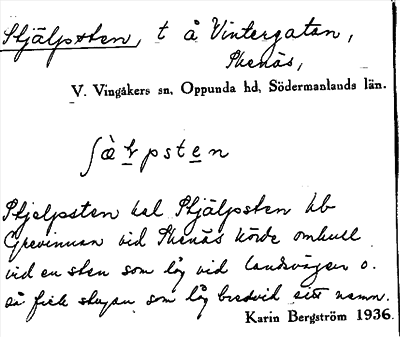 Stjälpsten, t å Vintergatan,
Skenäs,
V. Vingåkers sn, Oppunda hd, Södermanlands län.
ʃæ̀ɫpsten
Stjelpsten kal Stjälpsten hb
Grevinnan vid Skenäs körde omkull
vid en sten som låg vid landsvägen o.
så fick stugan som låg bredvid sitt namn.
Karin Bergström 1936.